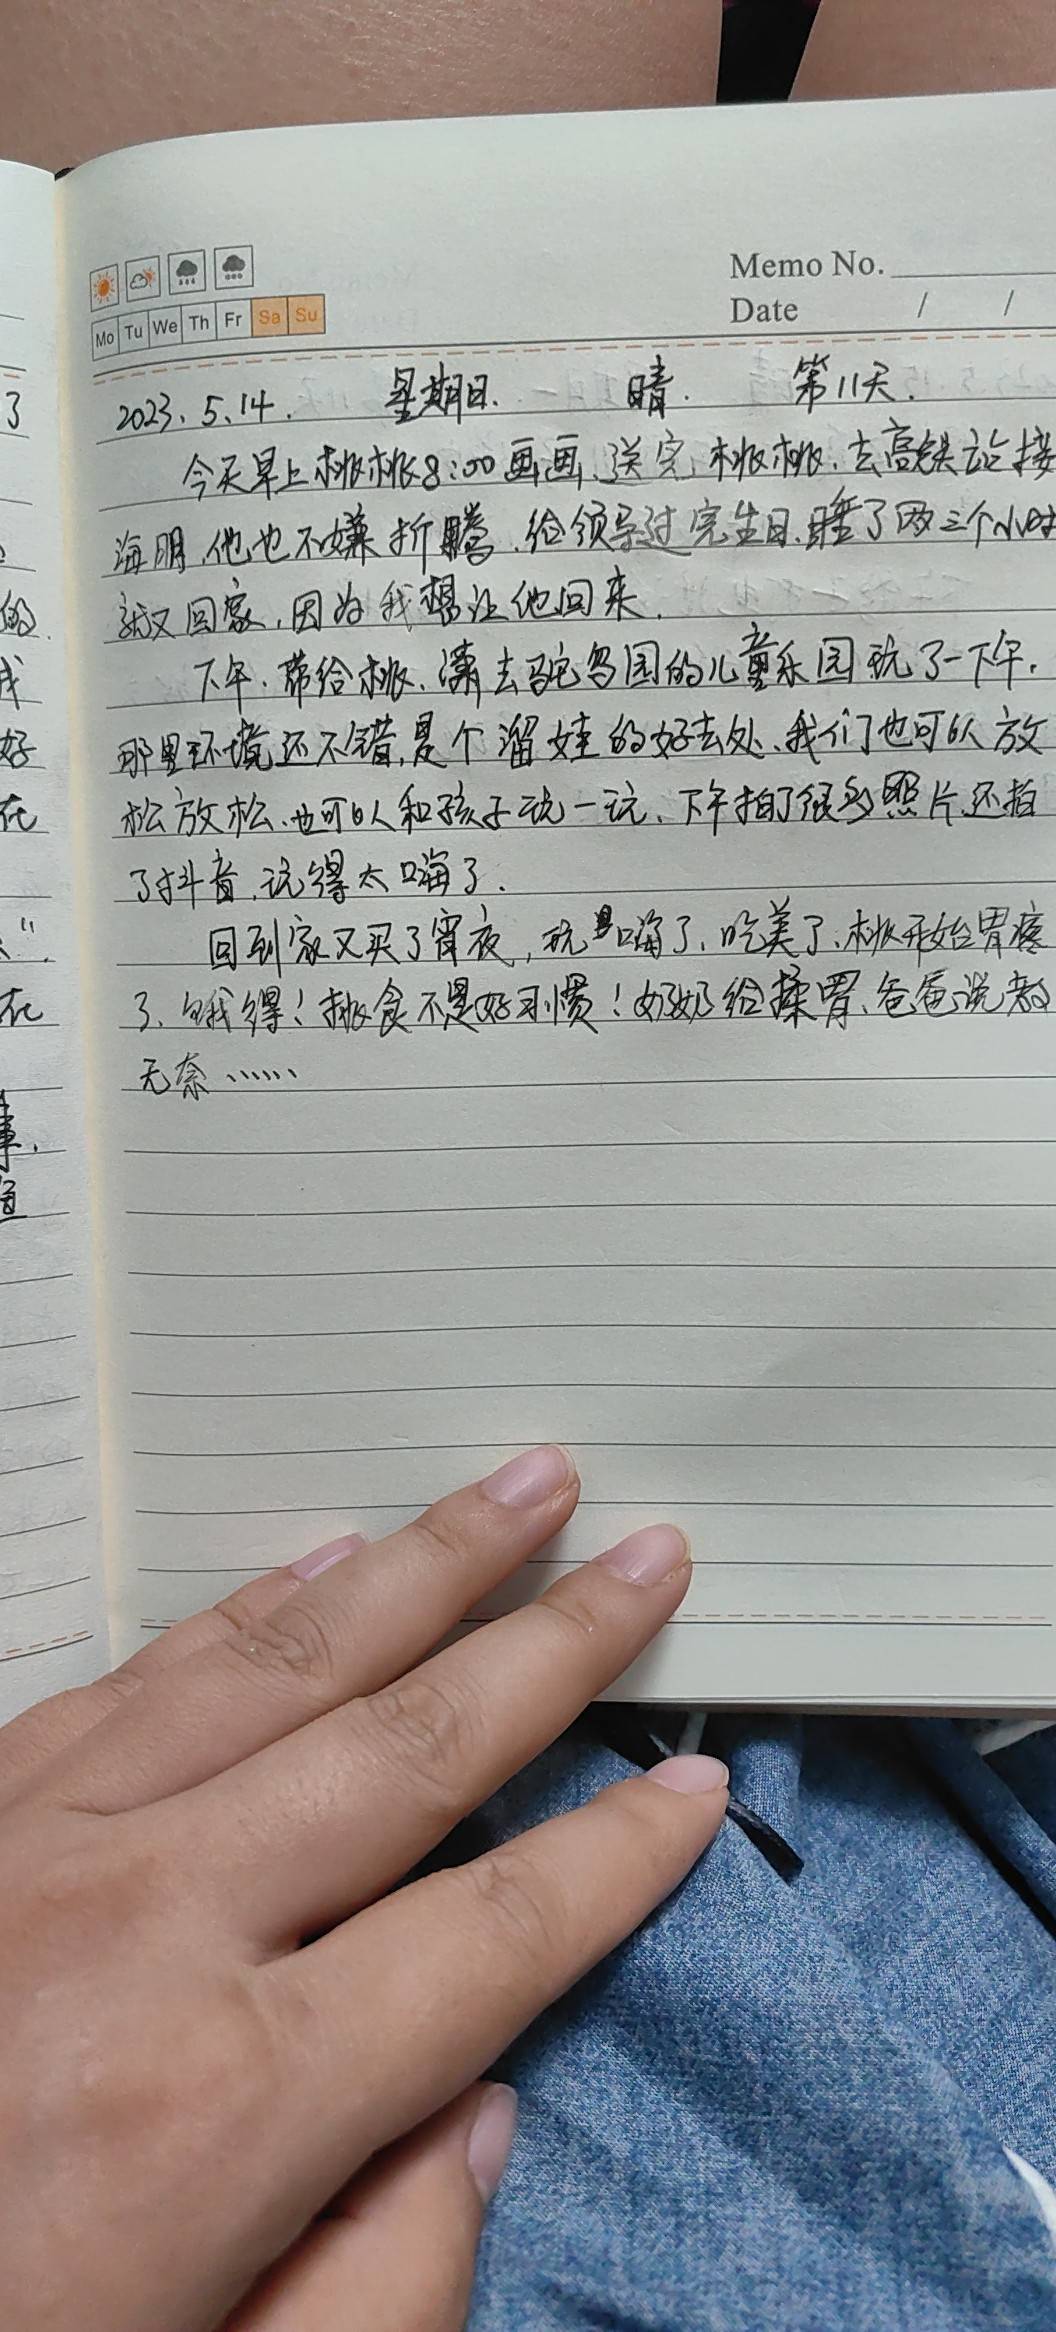 Memo No.
Date / /
Mo Tu We Th Fr Sa Su
2023.5.14. 星期日. 晴. 第11天.
今天早上桃桃8:00画画、送完桃桃.去高铁站接
海明.他也不嫌折腾.给领导过完生日.睡了两三个小时
就又回家,因为我想让他回来.
下午.带给桃、潇去鸵鸟园的儿童乐园玩了一下午.
那里环境还不错,是个溜娃的好去处、我们也可以放
松放松、也可以和孩子玩一玩、下午拍了很多照片.还拍
了抖音.玩得太嗨了.
回到家又买了宵夜,玩嗨了、吃美了、桃开始胃疼
了、饿得!挑食不是好习惯!奶奶给揉胃、爸爸说教
无奈……
了
的.
成
好
在
"
在
事.